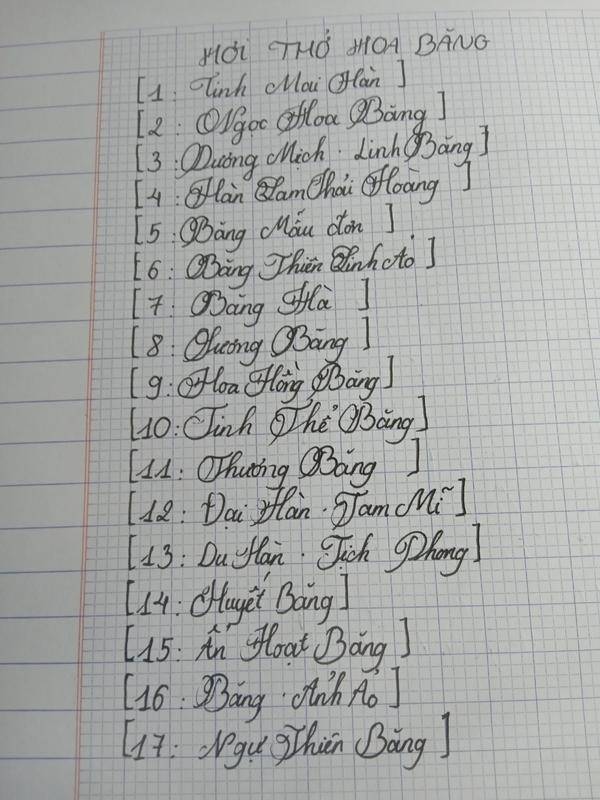 HƠI THỞ HOA BĂNG
[1: Tinh Mai Hàn]
[2: Ngọc Hoa Băng]
[3: Dương Mịch · Linh Băng]
[4: Hàn Lam Thải Hoàng]
[5: Băng Mẫu đơn]
[6: Băng Thiên Linh Ảo]
[7: Băng Hà]
[8: Chương Băng]
[9: Hoa Hồng Băng]
[10: Tinh Thể Băng]
[11: Thương Băng]
[12: Đại Hàn · Tam Mĩ]
[13: Du Hàn · Tịch Phong]
[14: Huyết Băng]
[15: Ẩn Hoạt Băng]
[16: Băng · Ảnh Ảo]
[17: Ngự Thiên Băng]